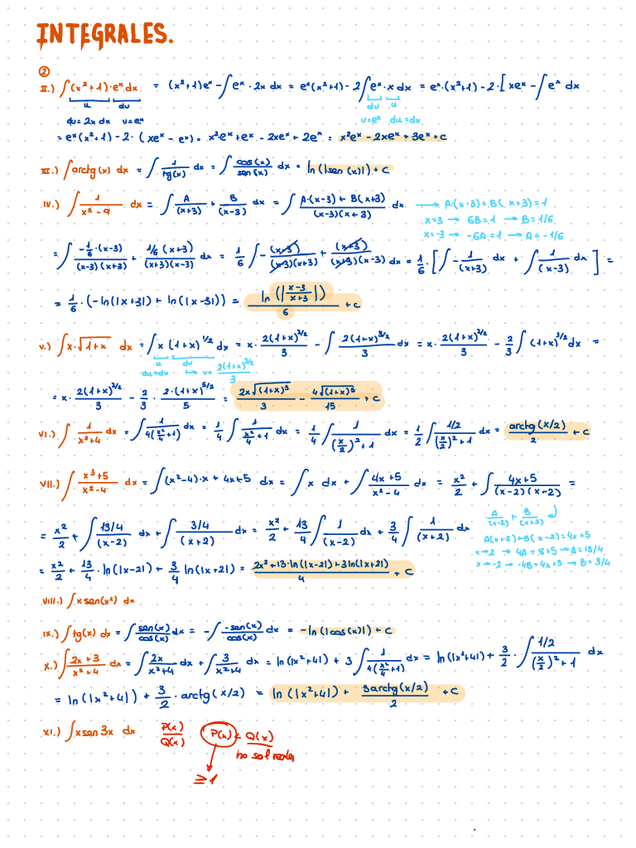 INTEGRALES.
②
II.) ∫(x²+1)·eˣ dx = (x²+1)eˣ - ∫eˣ·2x dx = eˣ(x²+1) - 2∫eˣ·x dx = eˣ·(x²+1) - 2·[xeˣ - ∫eˣ dx
u dv dv u
du=2x dx v=eˣ v=eˣ du=dx
= eˣ(x²+1) - 2·(xeˣ - eˣ) = x²eˣ + eˣ - 2xeˣ + 2eˣ = x²eˣ - 2xeˣ + 3eˣ + C
III.) ∫arctg(x) dx = ∫ 1/tg(x) dx = ∫ cos(x)/sen(x) dx = ln(|sen(x)|) + C
IV.) ∫ 1/(x²-9) dx = ∫ A/(x+3) + B/(x-3) dx = ∫ A·(x-3)+B(x+3)/(x-3)(x+3) dx → A·(x-3)+B(x+3)=1
x=3 → 6B=1 → B=1/6
x=-3 → -6A=1 → A=-1/6
= ∫ -1/6·(x-3)/(x-3)(x+3) + 1/6(x+3)/(x+3)(x-3) dx = 1/6 ∫ -(x-3)/(x-3)(x+3) + (x+3)/(x+3)(x-3) dx = 1/6·[∫ -1/(x+3) dx + ∫ 1/(x-3) dx] =
= 1/6·(-ln(|x+3|) + ln(|x-3|)) = ln(|x-3/x+3|)/6 + C
V.) ∫x·√(1+x) dx = ∫x(1+x)^1/2 dx = x·2(1+x)^3/2/3 - ∫ 2(1+x)^3/2/3 dx = x·2(1+x)^3/2/3 - 2/3 ∫(1+x)^3/2 dx =
u dv
du=dx → v= 2(1+x)^3/2/3
= x·2(1+x)^3/2/3 - 2/3·2·(1+x)^5/2/5 = 2x√(1+x)³/3 - 4√(1+x)⁵/15 + C
VI.) ∫ 1/(x²+4) dx = ∫ 1/4(x²/4+1) dx = 1/4 ∫ 1/(x²/4+1) dx = 1/4 ∫ 1/((x/2)²+1) dx = 1/2 ∫ 1/2/((x/2)²+1) dx = arctg(x/2)/2 + C
VII.) ∫ x³+5/x²-4 dx = ∫(x²-4)·x + 4x+5 dx = ∫x dx + ∫ 4x+5/x²-4 dx = x²/2 + ∫ 4x+5/(x-2)(x+2) =
A/(x-2) + B/(x+2)
= x²/2 + ∫ 13/4/(x-2) dx + ∫ 3/4/(x+2) dx = x²/2 + 13/4 ∫ 1/(x-2) dx + 3/4 ∫ 1/(x+2) dx
A(x+2)+B(x-2)=4x+5
x=2 → 4A=8+5 → A=13/4
x=-2 → -4B=4x+5 → B=3/4
= x²/2 + 13/4·ln(|x-2|) + 3/4 ln(|x+2|) = 2x²+13·ln(|x-2|)+3ln(|x+2|)/4 + C
VIII.) ∫x sen(x²) dx
IX.) ∫tg(x) dx = ∫ sen(x)/cos(x) dx = -∫ -sen(x)/cos(x) dx = -ln(|cos(x)|) + C
X.) ∫ 2x+3/x²+4 dx = ∫ 2x/x²+4 dx + ∫ 3/x²+4 dx = ln(|x²+4|) + 3 ∫ 1/4(x²/4+1) dx = ln(|x²+4|) + 3/2·∫ 1/2/((x/2)²+1) dx
= ln(|x²+4|) + 3/2·arctg(x/2) = ln(|x²+4|) + 3arctg(x/2)/2 + C
XI.) ∫x sen 3x dx P(x)/Q(x) P(x) < Q(x)
no sol reales
≥1